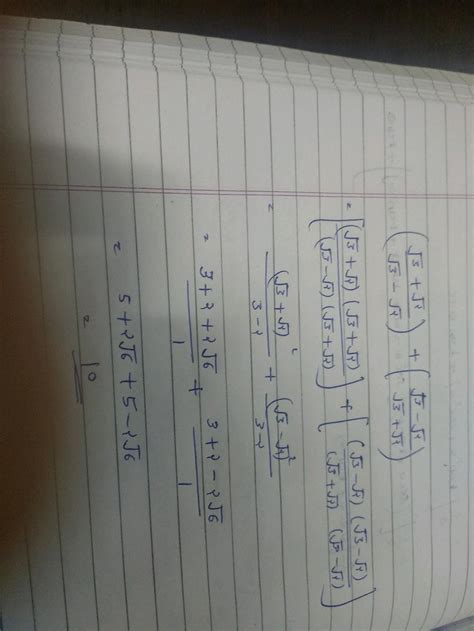 (√3 + √2 / √3 - √2) + (√3 - √2 / √3 + √2)
= [(√3 + √2) (√3 + √2) / (√3 - √2) (√3 + √2)] + [(√3 - √2) (√3 - √2) / (√3 + √2) (√3 - √2)]
= (√3 + √2)² / 3 - 2 + (√3 - √2)² / 3 - 2
= 3 + 2 + 2√6 / 1 + 3 + 2 - 2√6 / 1
= 5 + 2√6 + 5 - 2√6
= 10